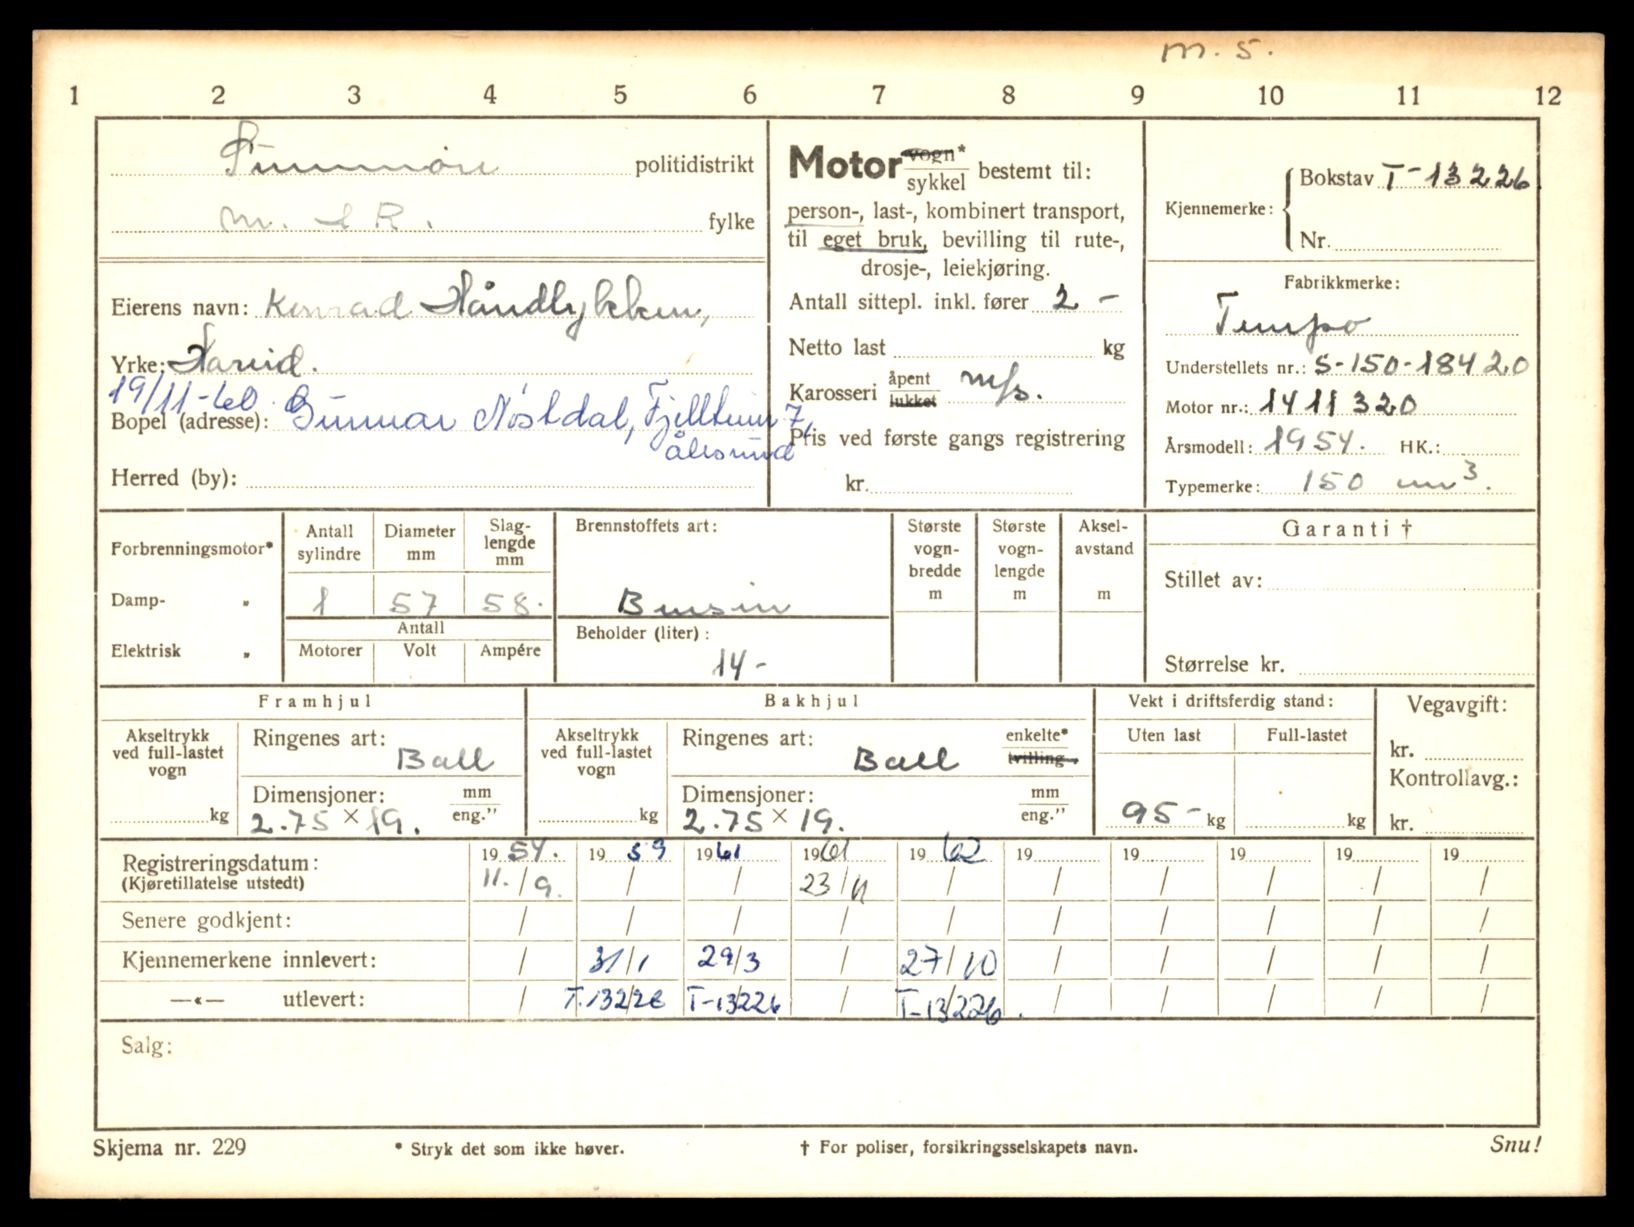 m. s.
1 2 3 4 5 6 7 8 9 10 11 12
Sunnmøre politidistrikt
M. & R. fylke
Eierens navn: Konrad Håndlykken,
Yrke: Hareid.
19/11-60. Gunnar Nøstdal, Fjelltun 7,
Ålesund
Bopel (adresse):
Herred (by):
Motor vogn*
sykkel bestemt til:
person-, last-, kombinert transport,
til eget bruk, bevilling til rute-,
drosje-, leiekjøring.
Antall sittepl. inkl. fører 2 -
Netto last kg
Karosseri åpent
lukket m/s.
Pris ved første gangs registrering
kr.
Kjennemerke: Bokstav T-13226
Nr.
Fabrikkmerke:
Tempo
Understellets nr.: S-150-18420
Motor nr.: 1411320
Årsmodell: 1954. HK.:
Typemerke: 150 cm³.
Forbrenningsmotor*
Damp- „
Elektrisk „
Antall sylindre
Diameter mm
Slag-
lengde
mm
1 57 58.
Antall
Motorer Volt Ampére
Brennstoffets art:
Bensin
Beholder (liter):
14 -
Største
vogn-
bredde
m
Største
vogn-
lengde
m
Aksel-
avstand
m
Garanti †
Stillet av:
Størrelse kr.
Framhjul
Akseltrykk
ved full-lastet
vogn
kg
Ringenes art: Ball
Dimensjoner: mm
2.75 × 19. eng.”
Bakhjul
Akseltrykk
ved full-lastet
vogn
kg
Ringenes art: Ball enkelte*
tvilling „
Dimensjoner: mm
2.75 × 19. eng.”
Vekt i driftsferdig stand:
Uten last Full-lastet
95 - kg kg
Vegavgift:
kr.
Kontrollavg.:
kr.
Registreringsdatum: 1954. 1959 1961 1961 1962 19 19 19 19 19
(Kjøretillatelse utstedt) 11./9. / / 23/11 / / / / / /
Senere godkjent: / / / / / / / / / /
Kjennemerkene innlevert: / 31/1 29/3 / 27/10 / / / / /
—«— utlevert: / T.13226 T-13226 / T-13226. / / / / /
Salg:
Skjema nr. 229 * Stryk det som ikke høver. † For poliser, forsikringsselskapets navn. Snu!